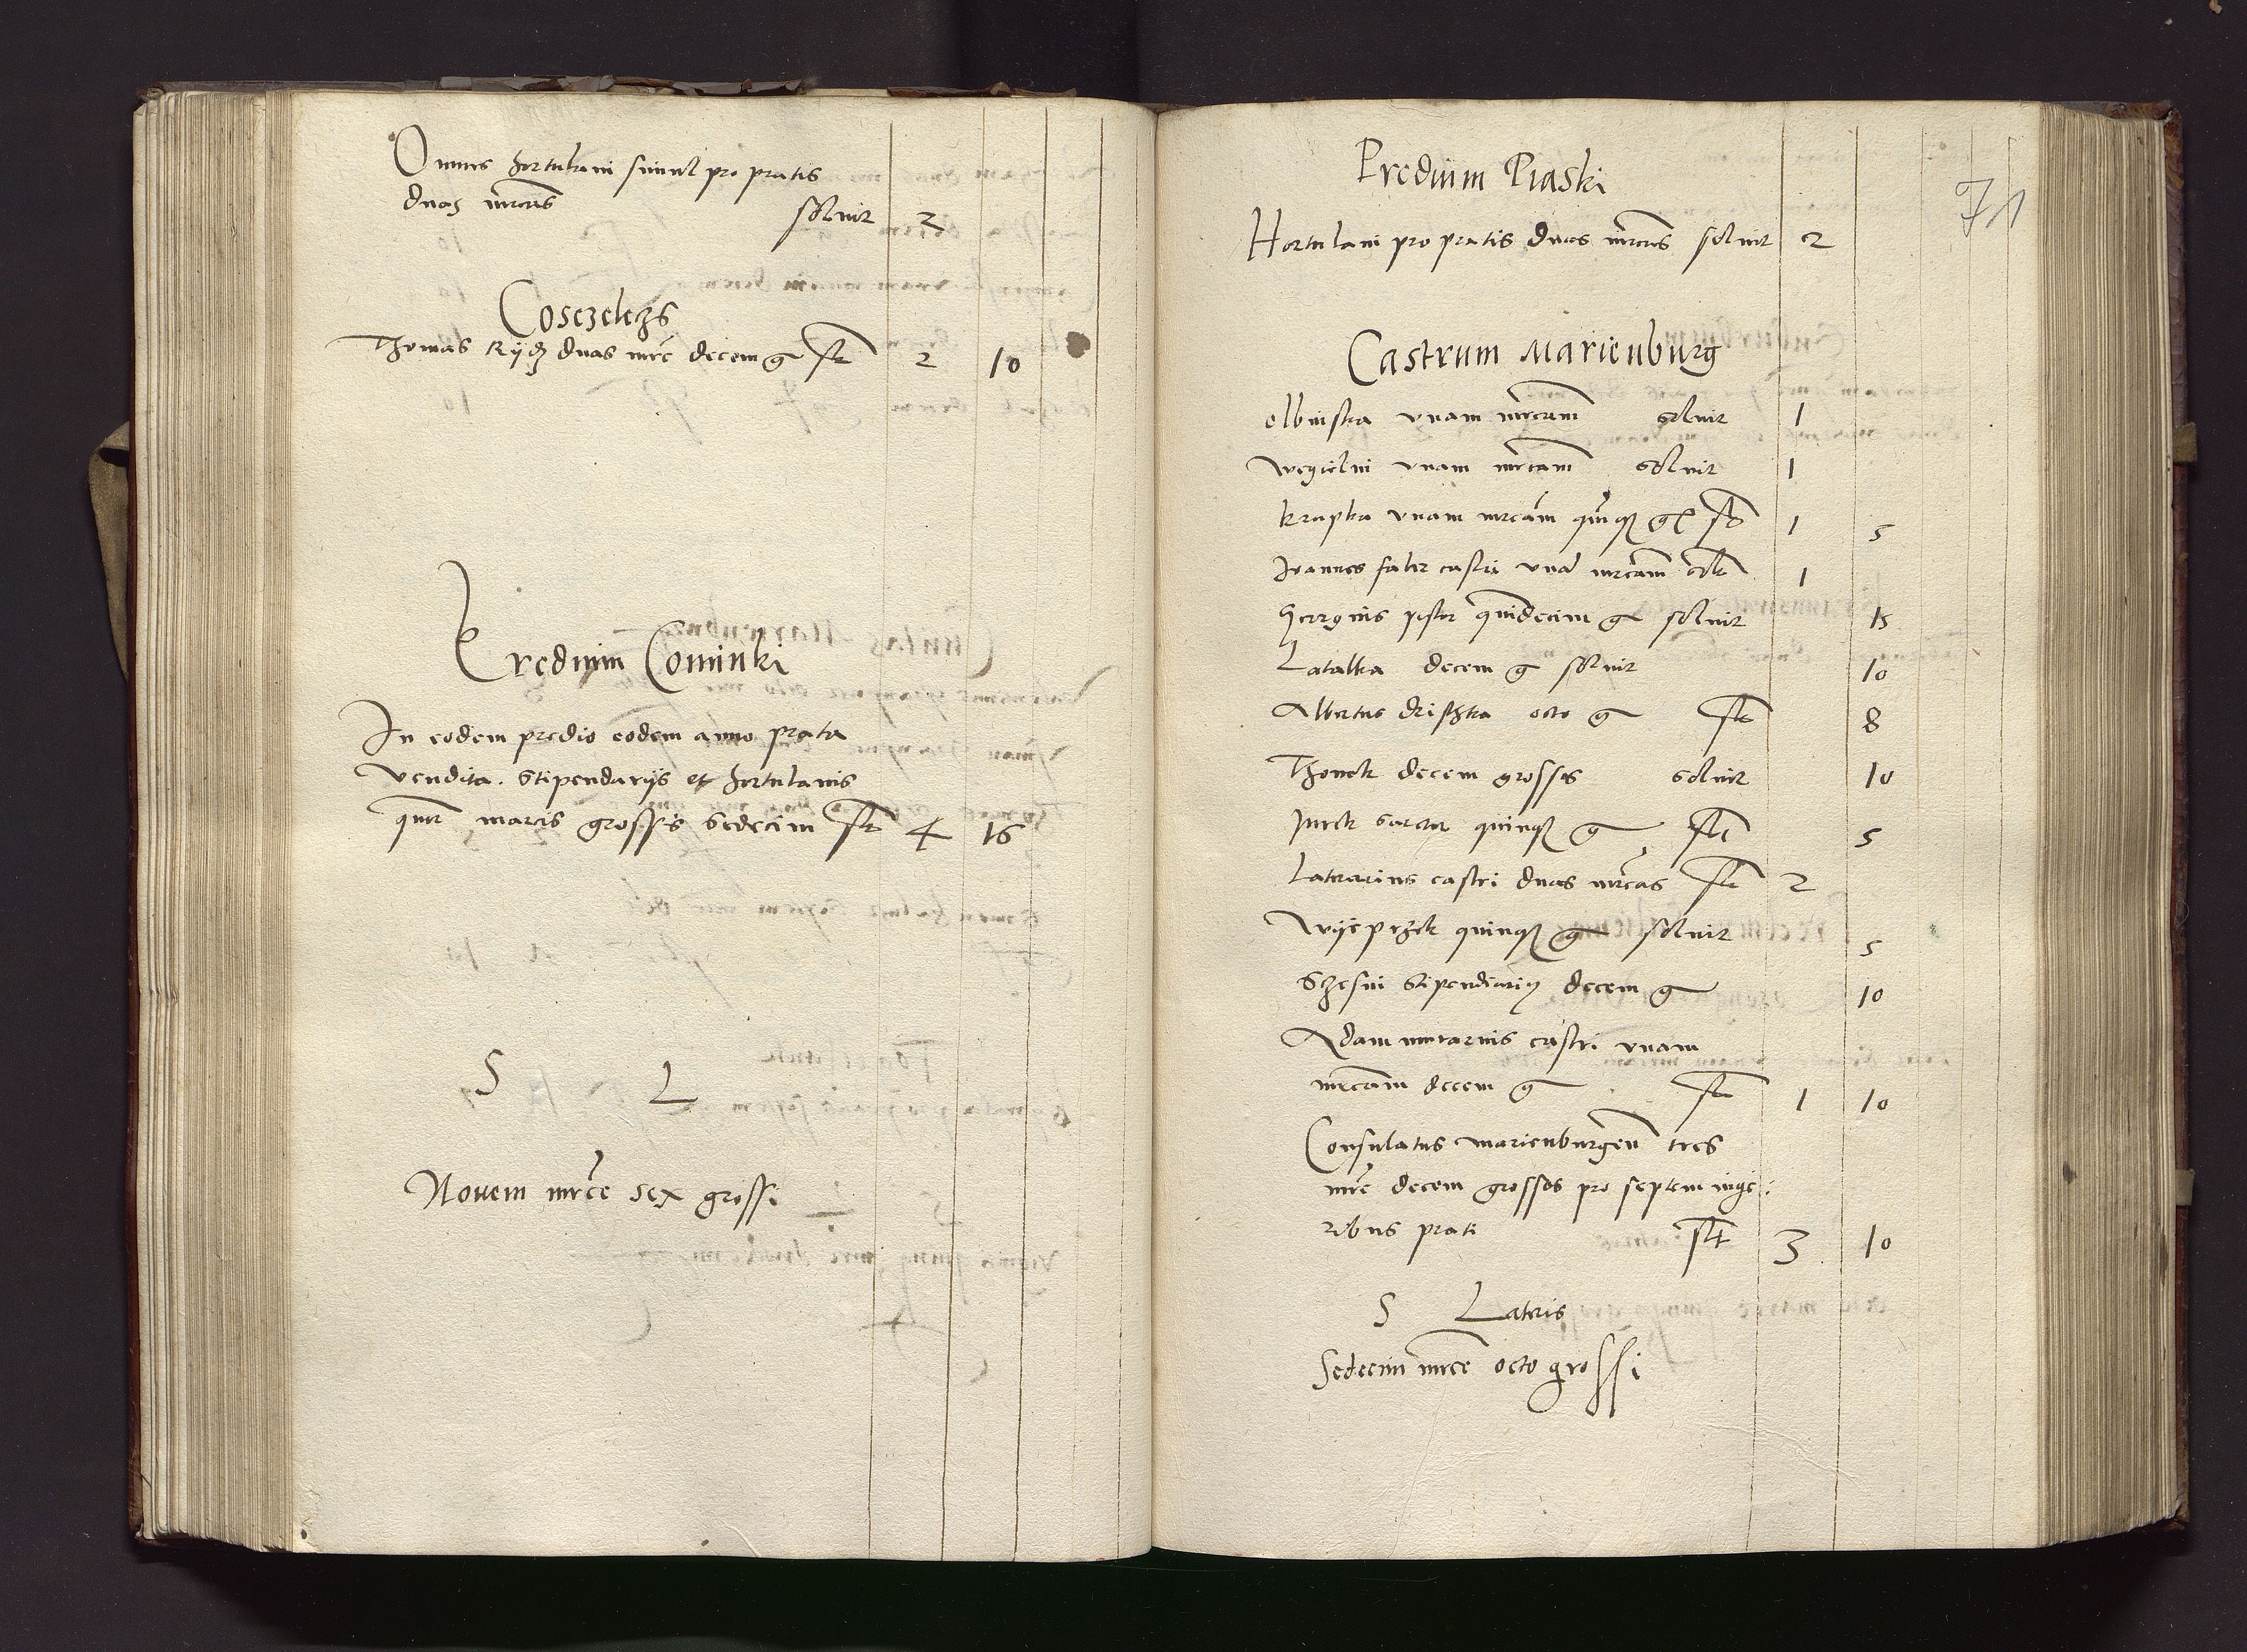 Omnes hortulani simul pro pratis
duas mrcas solvit 2
Coszelezs
Thomas Rijdz duas mrc decem g slt 2 10
Predium Cominki
In eodem predio eodem anno prata
vendita. Stipendarijs et hortulanis
qtuor marcis grossis sedecim slt 4 16
S L
Novem mrce sex grossi
71
Predium Piaski
Hortulani pro pratis duas mrcas solvit 2
Castrum Marienburg
olbinska vnam mrcam solvit 1
wegielni vnam mrcam solvit 1
krupka vnam mrcam quinq g slt 1 5
Joannes faber castri vna mrcam slt 1
Georgius pistor quindecim g solvit 15
Latalka decem g solvit 10
Albertus driszka octo g slt 8
Thomek decem grossos solvit 10
Jurek sartor quinq g slt 5
Laterarius castri duas mrcas slt 2
Wijeprzek quinq g solvit 5
Szesni stipendiariq decem g 10
Adam murarius castri vnam
mrcam decem g slt 1 10
Consulatus marienburgen tres
mrc decem grossos pro septem iuge:
ribus prati slt 3 10
S Lateris
Sedecim mrce octo grossi